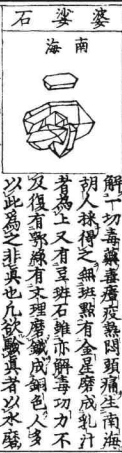 婆娑石
南海
解一切毒藥毒瘴疫熱悶頭痛生南海
胡人採得之無斑點有金星磨成乳汁
者為上又有豆斑石雖亦解毒功力不
及復有鄂綠有文理磨鐵成銅色人多
以此為之非真也凡欲驗真者以水磨